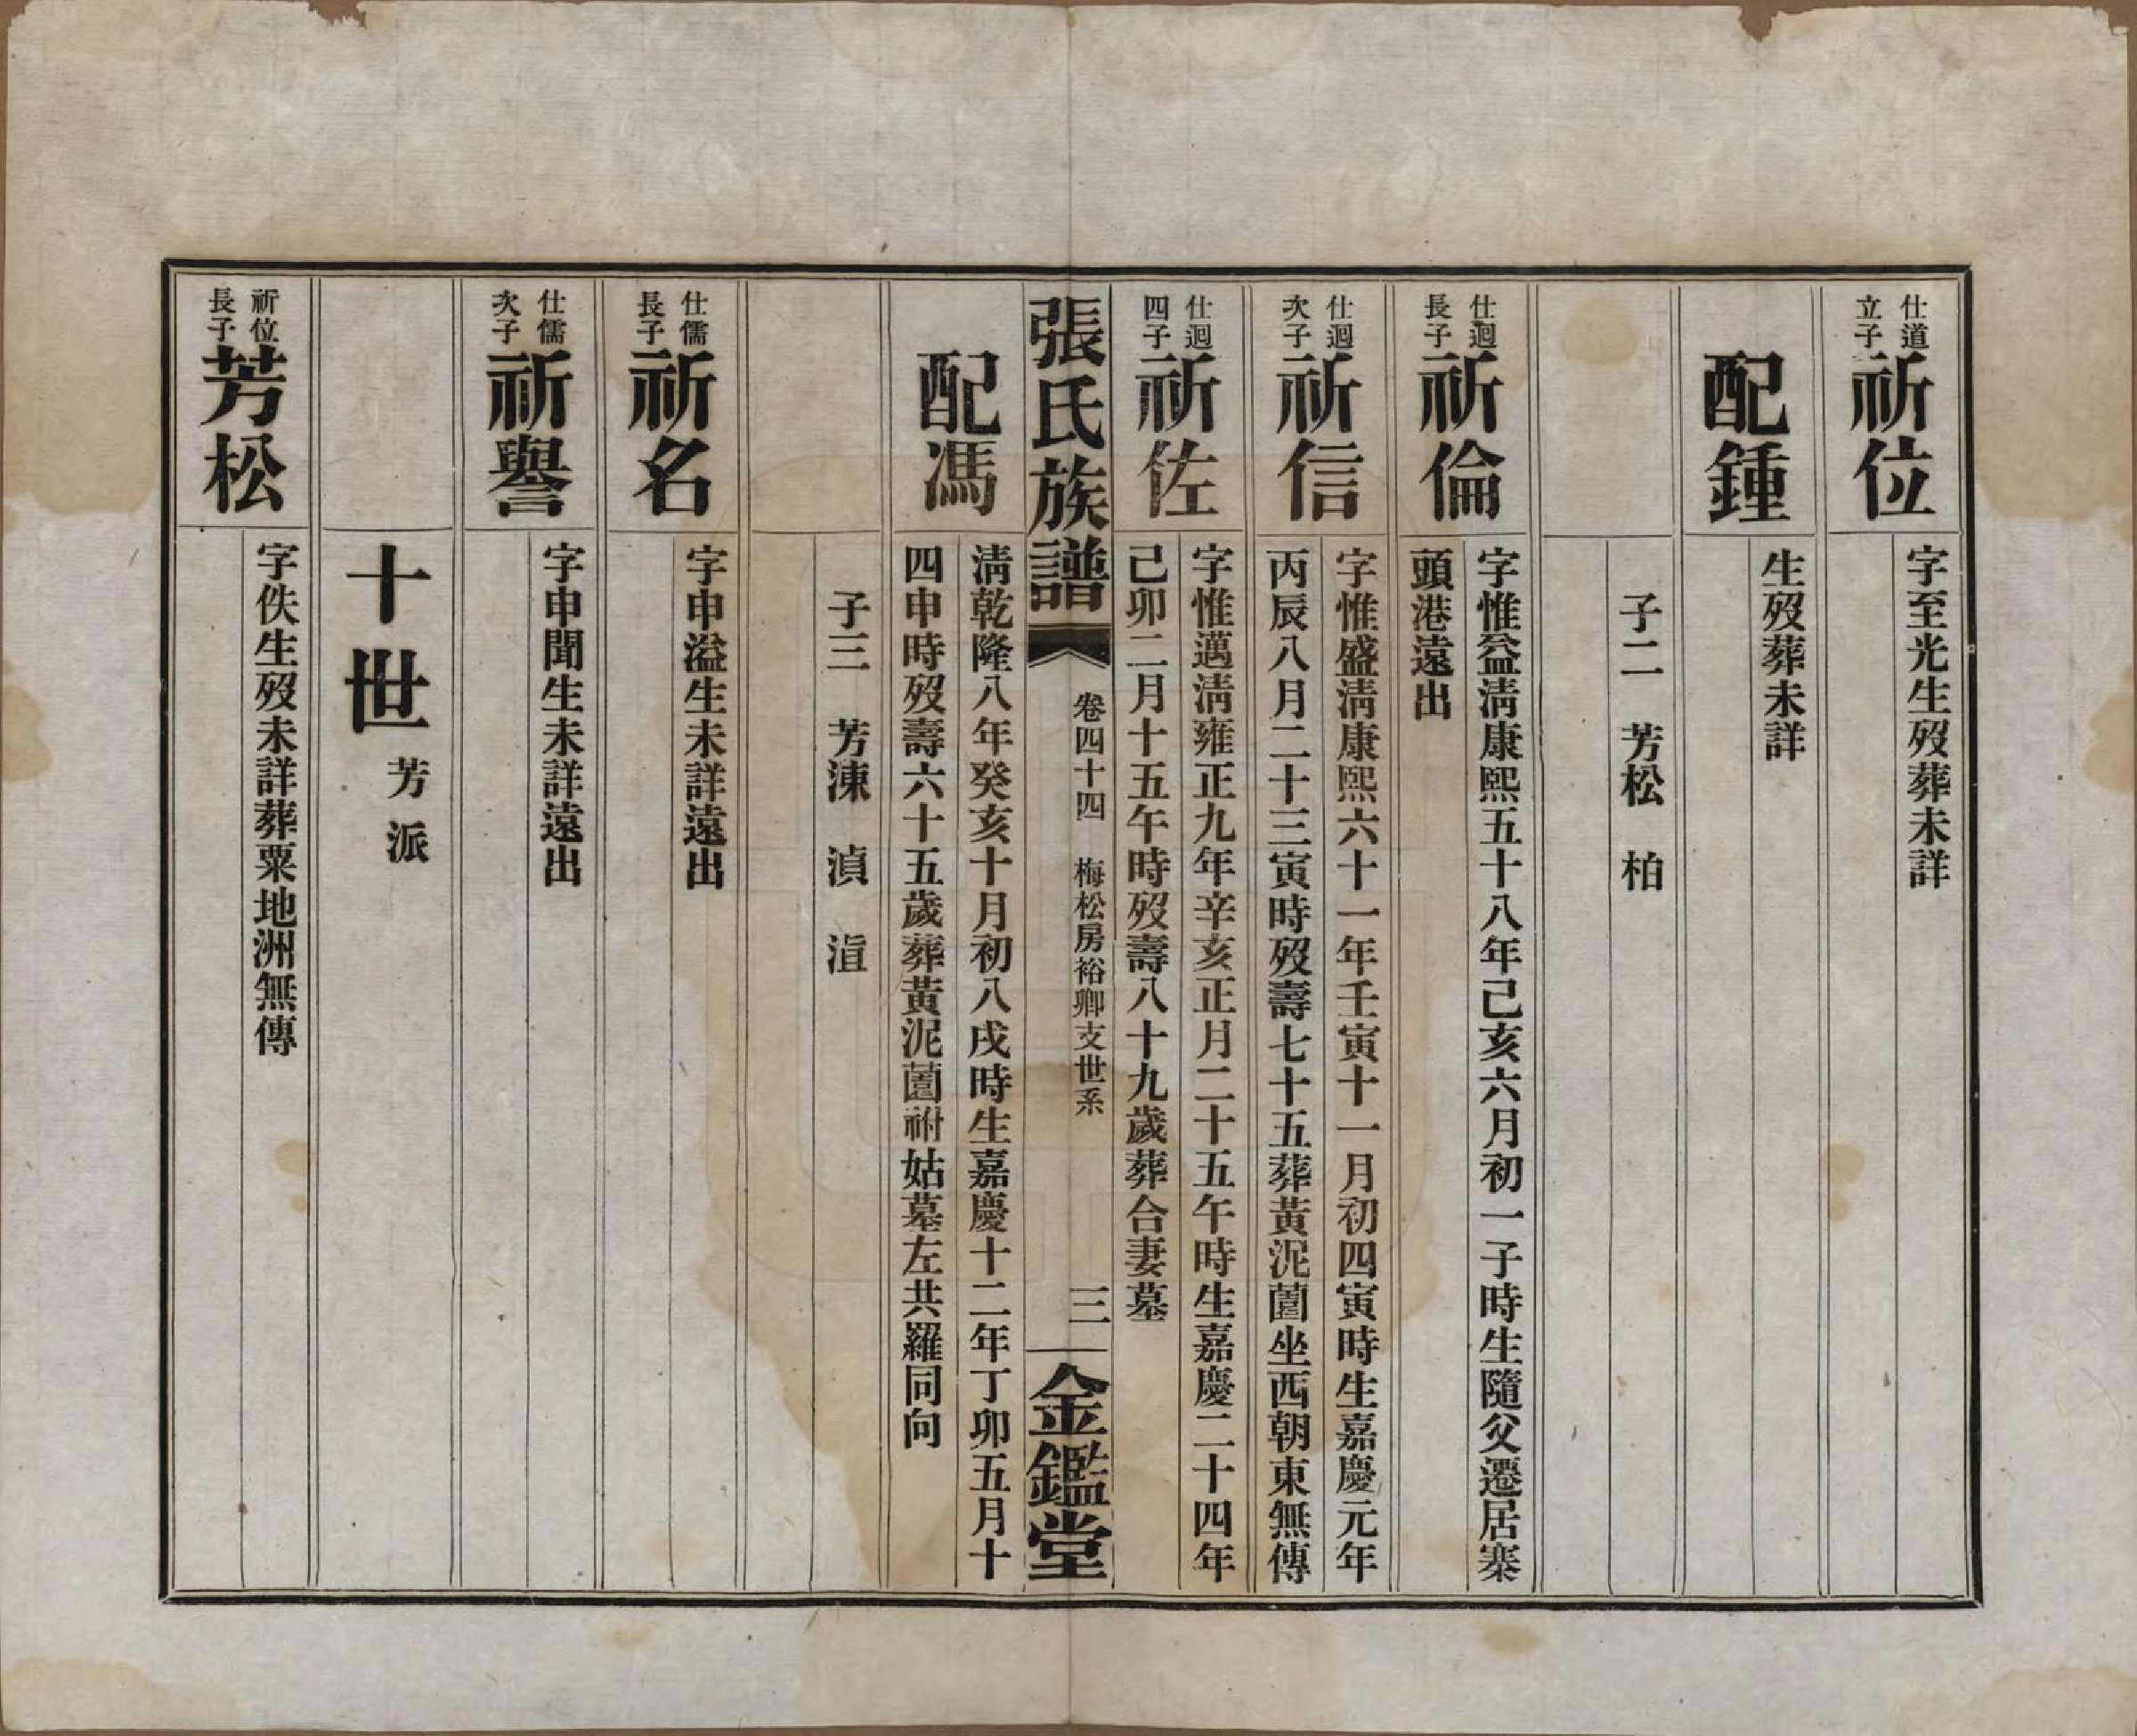 仕道立子
祈位
字至光生歿葬未詳
配鍾
生歿葬未詳
子二　芳松　柏
仕迴長子
祈倫
字惟益淸康熙五十八年己亥六月初一子時生隨父遷居寨
頭港遠出
仕迴次子
祈信
字惟盛淸康熙六十一年壬寅十一月初四寅時生嘉慶元年
丙辰八月二十三寅時歿壽七十五葬黃泥薗坐西朝東無傳
仕迴四子
祈佐
字惟邁淸雍正九年辛亥正月二十五午時生嘉慶二十四年
己卯二月十五午時歿壽八十九歲葬合妻墓
張氏族譜
卷四十四　梅松房裕卿支世系
三
金鑑堂
配馮
淸乾隆八年癸亥十月初八戌時生嘉慶十二年丁卯五月十
四申時歿壽六十五歲葬黃泥薗祔姑墓左共羅同向
子三　芳涷　湞　渲
仕儒長子
祈名
字申溢生未詳遠出
仕儒次子
祈譽
字申聞生未詳遠出
十世　芳派
祈位長子
芳松
字佚生歿未詳葬粟地洲無傳